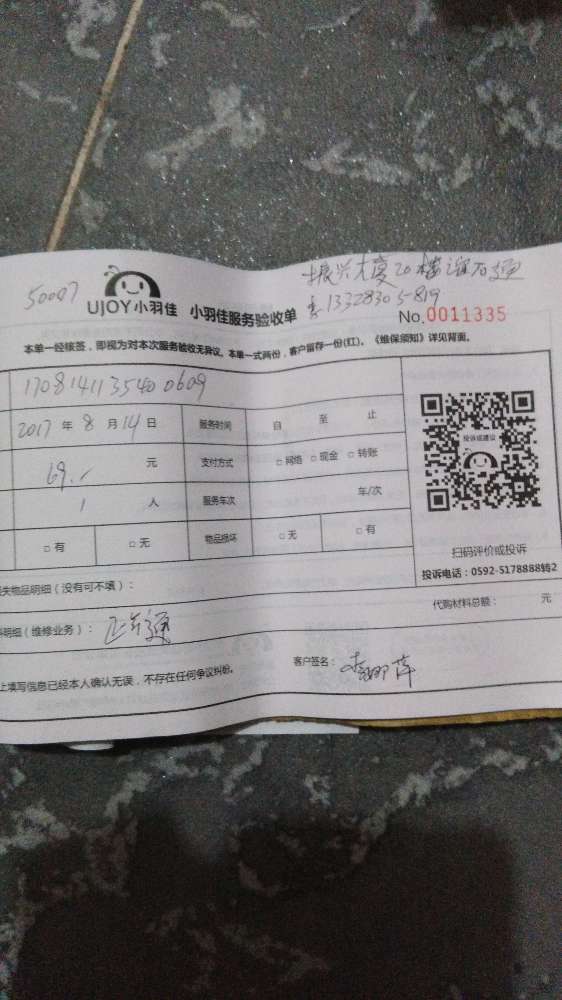 振兴大厦20楼
50007
UJOY小羽佳 小羽佳服务验收单
13328305819
No.0011335
本单一经核签，即视为对本次服务验收无异议。本单一式两份，客户留存一份(红)。《维保须知》详见背面。
170814113540 0609
2017 年 8 月 14 日 服务时间 自 至 止
69.- 元 支付方式 □ 网络 □ 现金 □ 转账
1 人 服务车次 年/次
□ 有 □ 无 物品损坏 □ 无 □ 有
投诉或建议
扫码评价或投诉
投诉电话：0592-5178888转2
失物品明细（没有可不填）：
代购材料总额： 元
明细（维修业务）：
客户签名：
上填写信息已经本人确认无误，不存在任何争议纠纷。